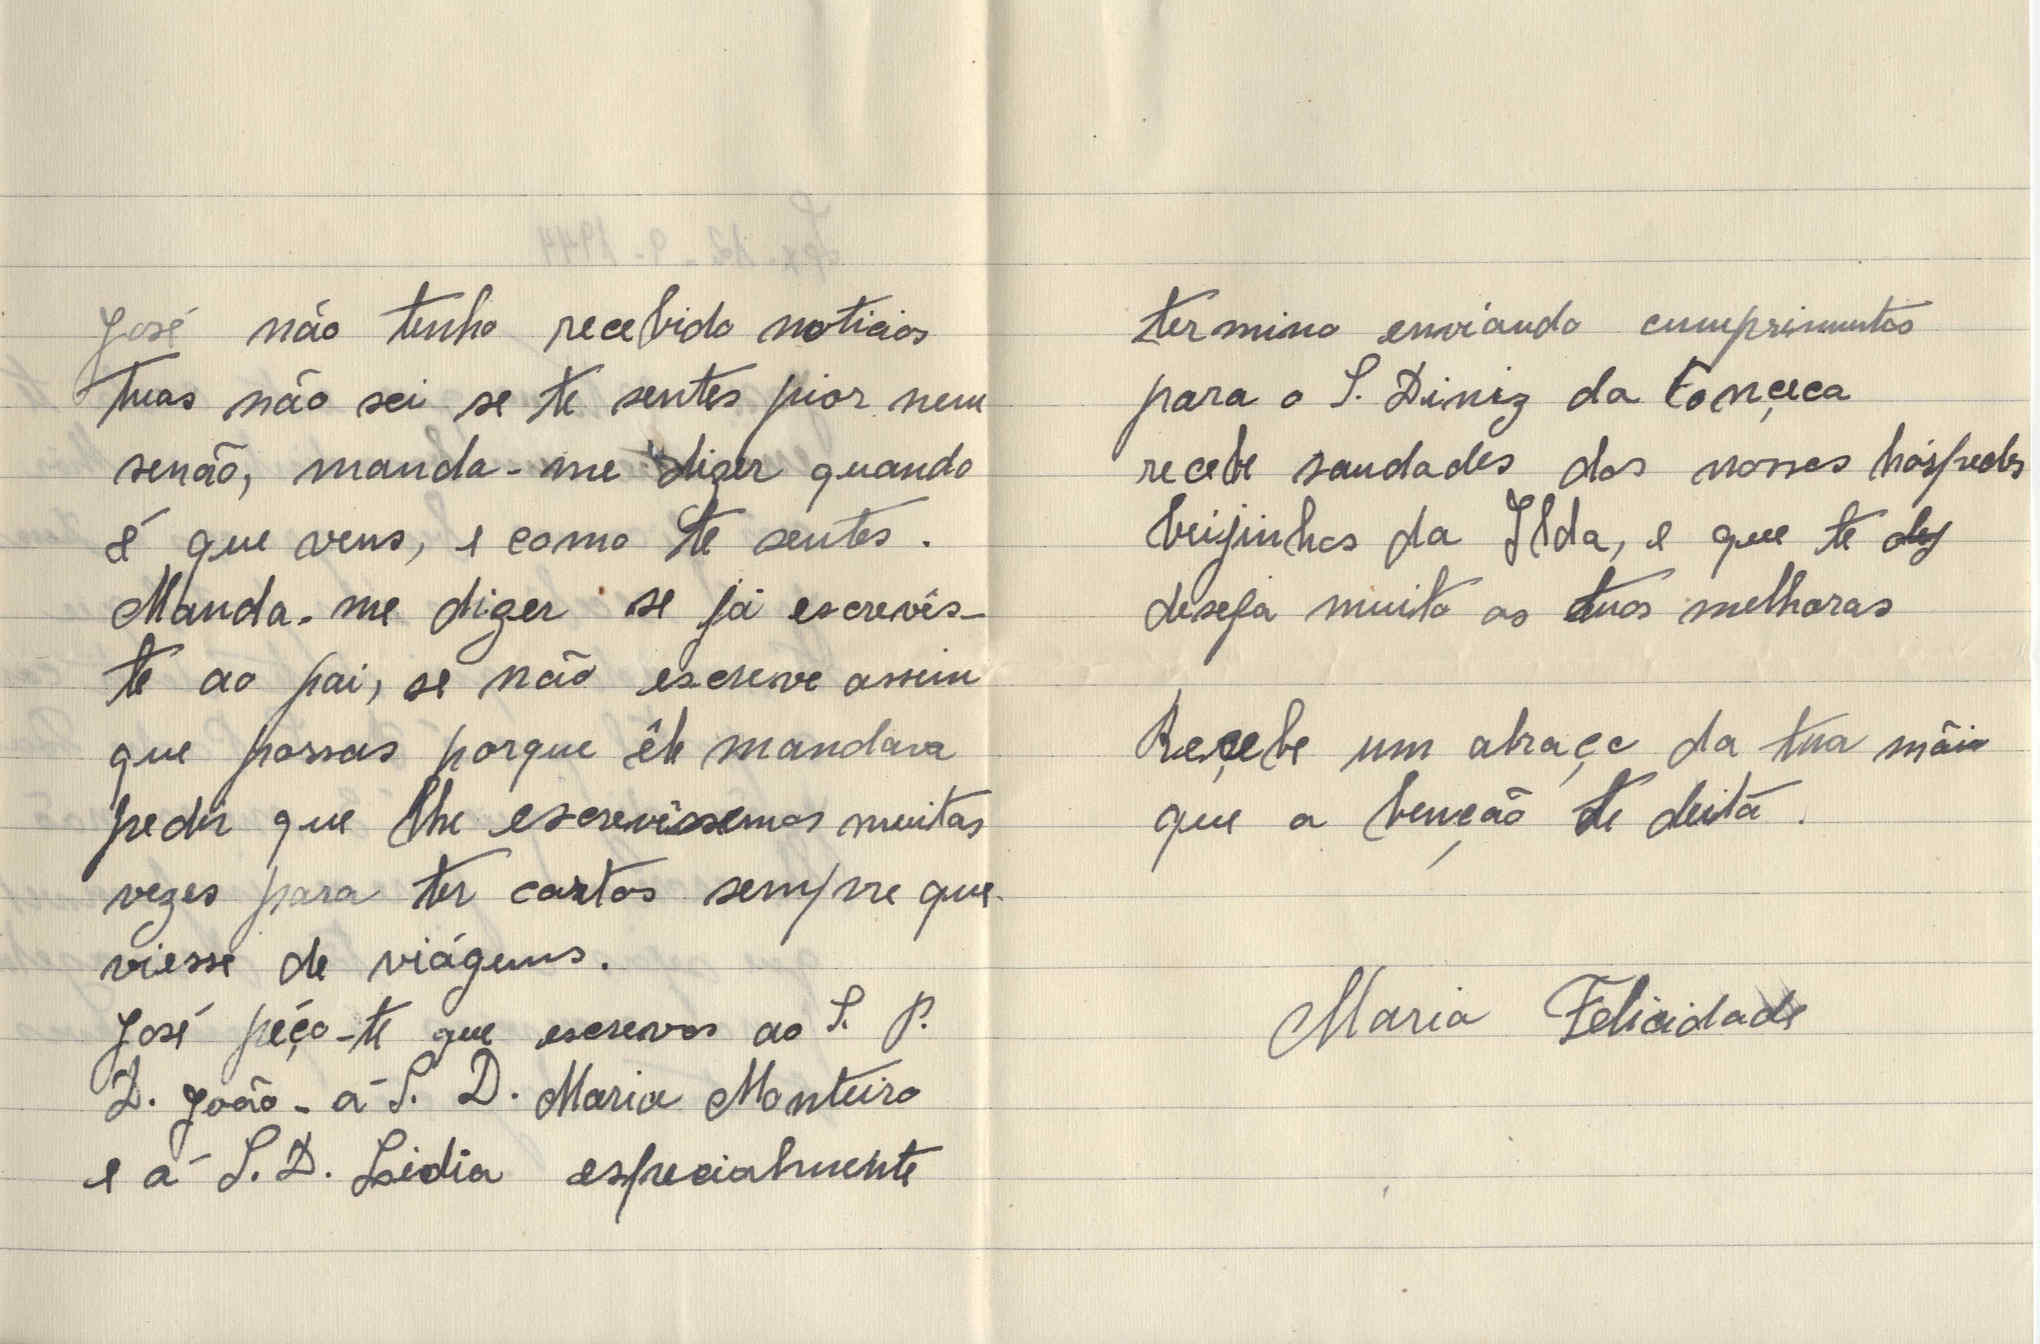 José não tenho recebido noticias
tuas não sei se te sentes pior nem
senão, manda-me dizer quando
é que vens, e como te sentes.
Manda-me dizer se já escrevês-
te ao pai, se não escreve assim
que possas porque êle mandava
pedir que lhe escrevêssemos muitas
vezes para ter cartas sempre que
viesse de viágems.
José péço-te que escrevas ao S. P.
D. João - á S. D. Maria Monteiro
e á S. D. Lidia especialmente
termino enviando cumprimentos
para o S. Diniz da Fonçeca
recebe saudades dos nossos hóspedes
beijinhos da Ilda, e que te
deseja muito as tuas melhoras
Reçebe um abraço da tua mãie
que a benção te deita.
Maria Felicidade